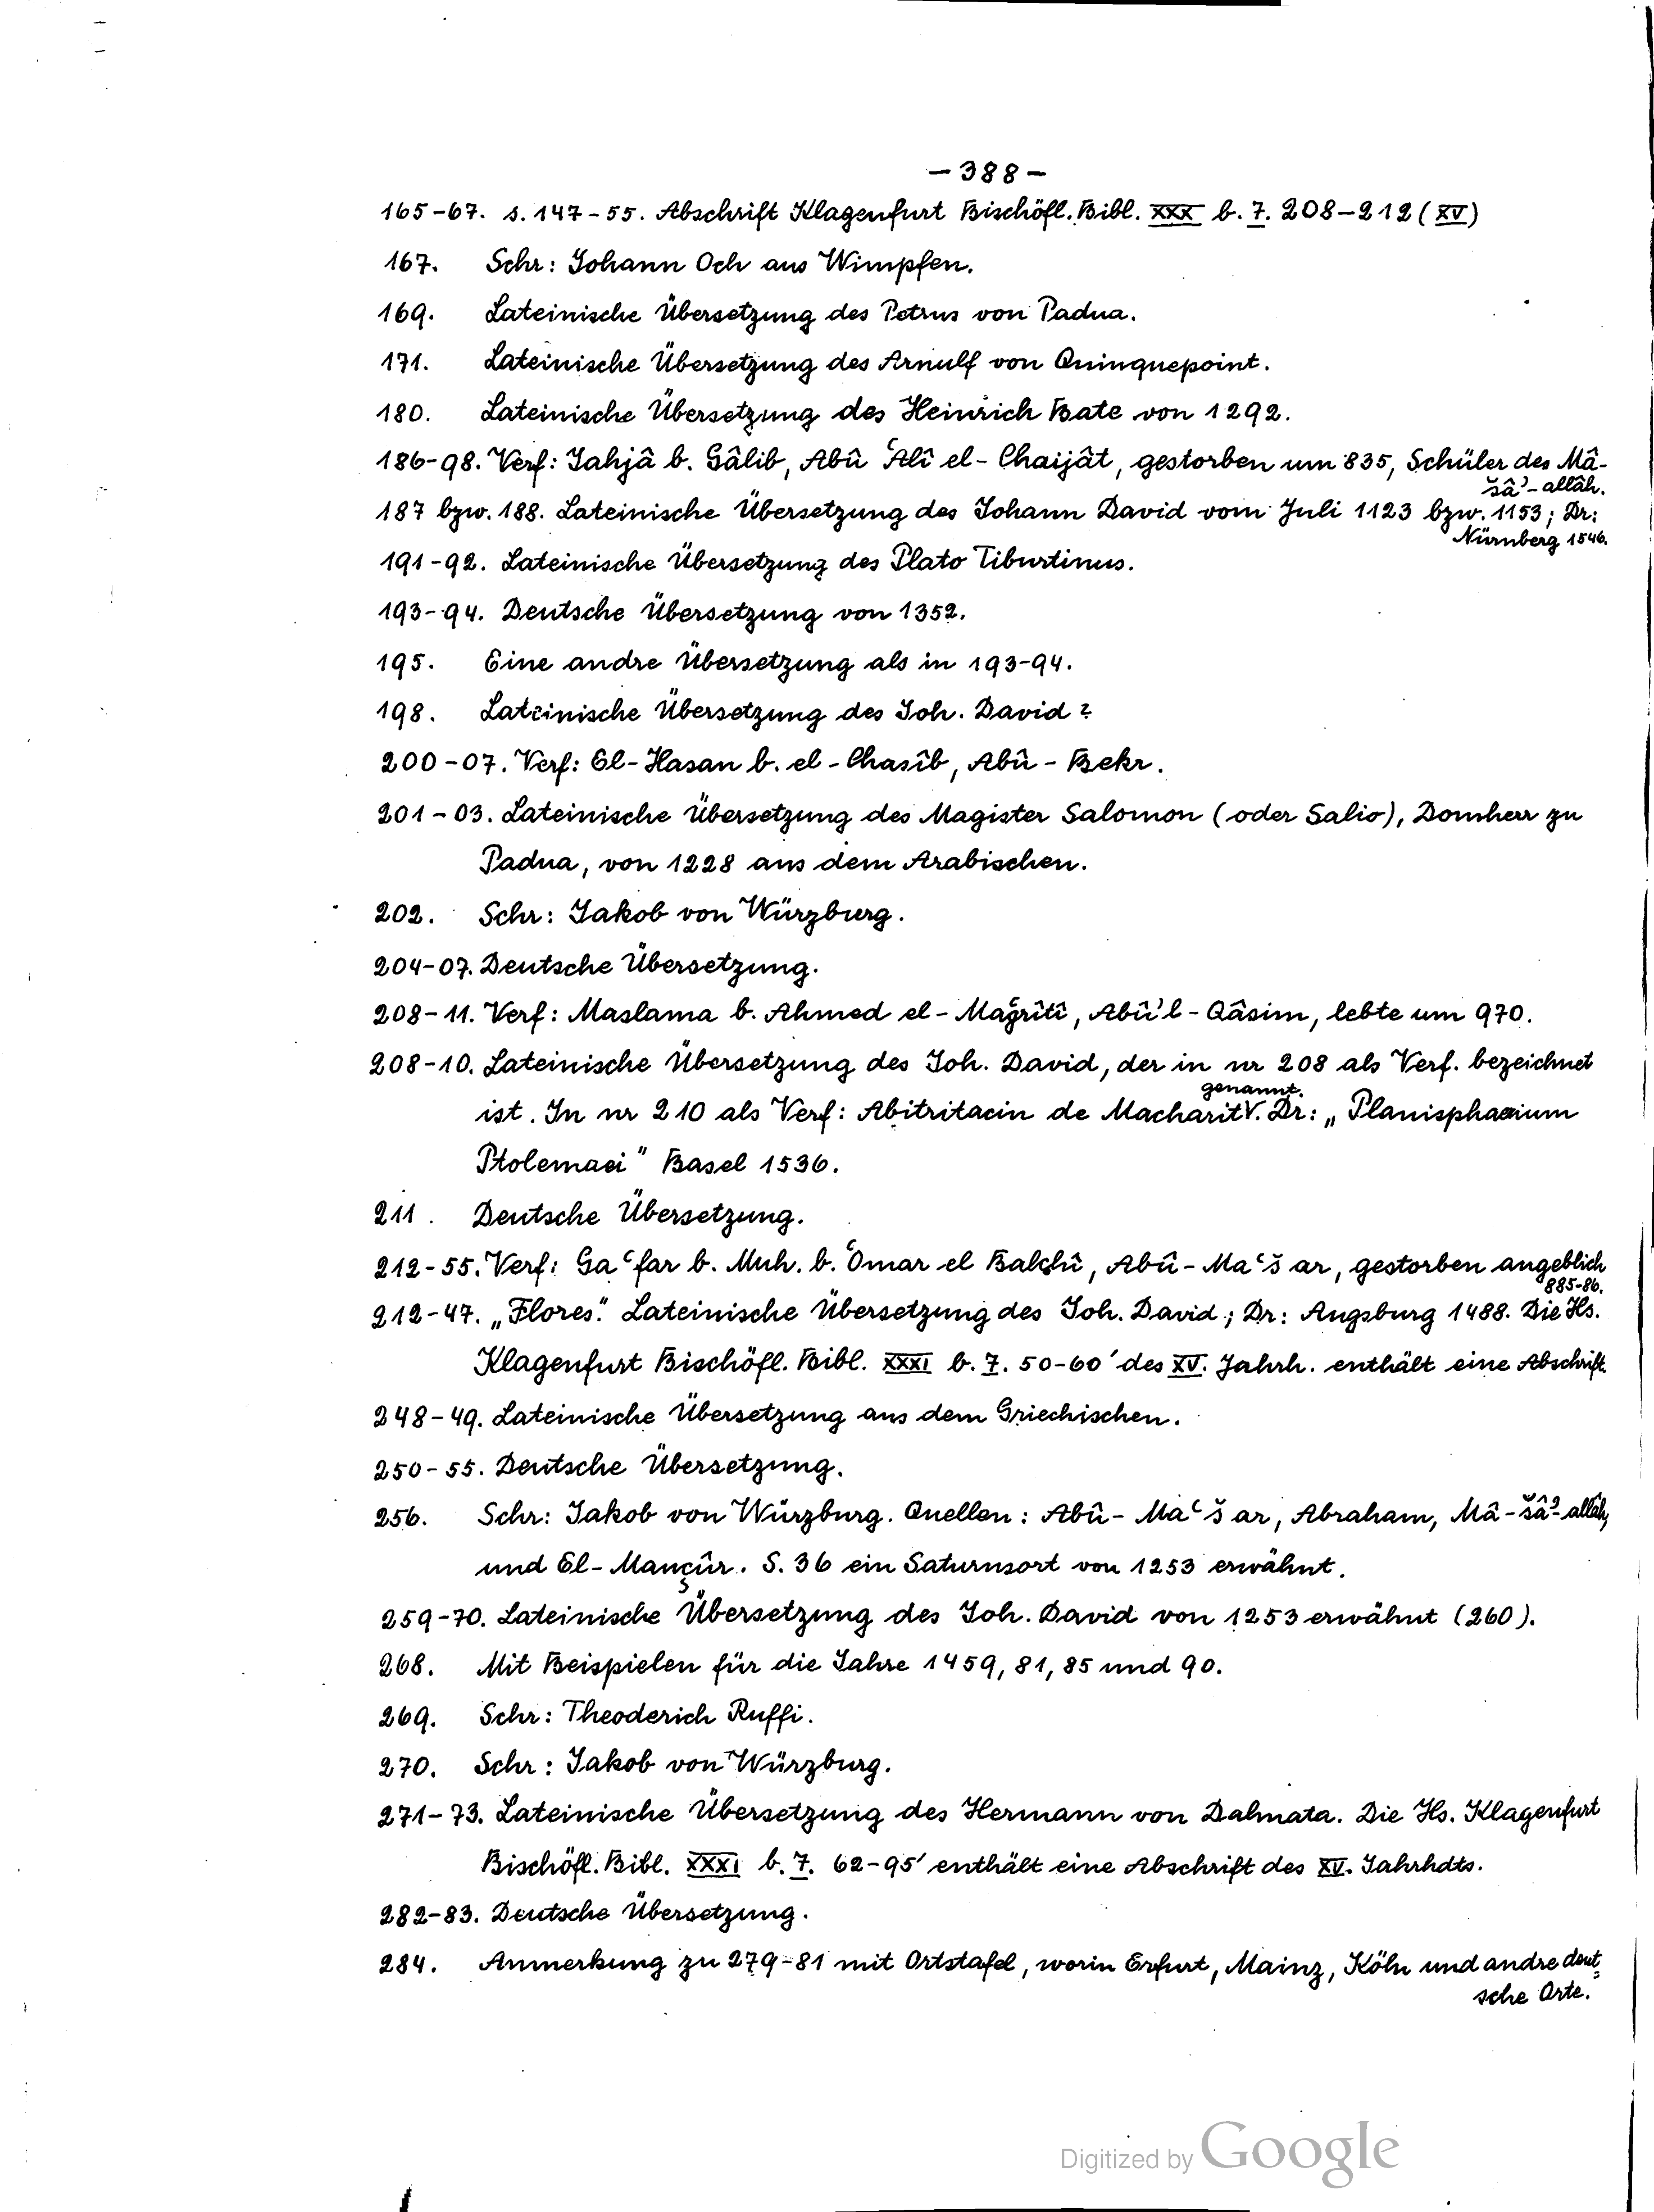 – 388 –
165-67. s. 147-55. Abschrift Klagenfurt Bischöfl. Bibl. XXX b. 7. 208-212 (XV)
167. Schr: Johann Och aus Wimpfen.
169. Lateinische Übersetzung des Petrus von Padua.
171. Lateinische Übersetzung des Arnulf von Quinquepoint.
180. Lateinische Übersetzung des Heinrich Bate von 1292.
186-98. Verf: Jahjâ b. Gâlib, Abû ʿAlî el-Chaijât, gestorben um 835, Schüler des Mâ-
šâʾ-allâh.
187 bzw. 188. Lateinische Übersetzung des Johann David vom Juli 1123 bzw. 1153; Dr:
Nürnberg 1546.
191-92. Lateinische Übersetzung des Plato Tiburtinus.
193-94. Deutsche Übersetzung von 1352.
195. Eine andre Übersetzung als in 193-94.
198. Lateinische Übersetzung des Joh. David?
200-07. Verf: El-Hasan b. el-Chasîb, Abû-Bekr.
201-03. Lateinische Übersetzung des Magister Salomon (oder Salio), Domherr zu
Padua, von 1228 aus dem Arabischen.
202. Schr: Jakob von Würzburg.
204-07. Deutsche Übersetzung.
208-11. Verf: Maslama b. Ahmed el-Maǧrîtî, Abû'l-Qâsim, lebte um 970.
208-10. Lateinische Übersetzung des Joh. David, der in nr 208 als Verf. bezeichnet
ist. In nr 210 als Verf: Abitritacin de Macharit genannt. Dr: „Planisphaerium
Ptolemaei" Basel 1536.
211. Deutsche Übersetzung.
212-55. Verf: Gaʿfar b. Muh. b. ʿOmar el Balchî, Abû-Maʿšar, gestorben angeblich
885-86.
212-47. „Flores". Lateinische Übersetzung des Joh. David; Dr: Augsburg 1488. Die Hs.
Klagenfurt Bischöfl. Bibl. XXXI b. 7. 50-60' des XV. Jahrh. enthält eine Abschrift.
248-49. Lateinische Übersetzung aus dem Griechischen.
250-55. Deutsche Übersetzung.
256. Schr: Jakob von Würzburg. Quellen: Abû-Maʿšar, Abraham, Mâ-šâʾ-allâh,
und El-Mançûr. S. 36 ein Saturnsort von 1253 erwähnt.
259-70. Lateinische Übersetzung des Joh. David von 1253 erwähnt (260).
268. Mit Beispielen für die Jahre 1459, 81, 85 und 90.
269. Schr: Theoderich Ruffi.
270. Schr: Jakob von Würzburg.
271-73. Lateinische Übersetzung des Hermann von Dalmata. Die Hs. Klagenfurt
Bischöfl. Bibl. XXXI b. 7. 62-95' enthält eine Abschrift des XV. Jahrhdts.
282-83. Deutsche Übersetzung.
284. Anmerkung zu 279-81 mit Ortstafel, worin Erfurt, Mainz, Köln und andre deut-
sche Orte.
Digitized by Google